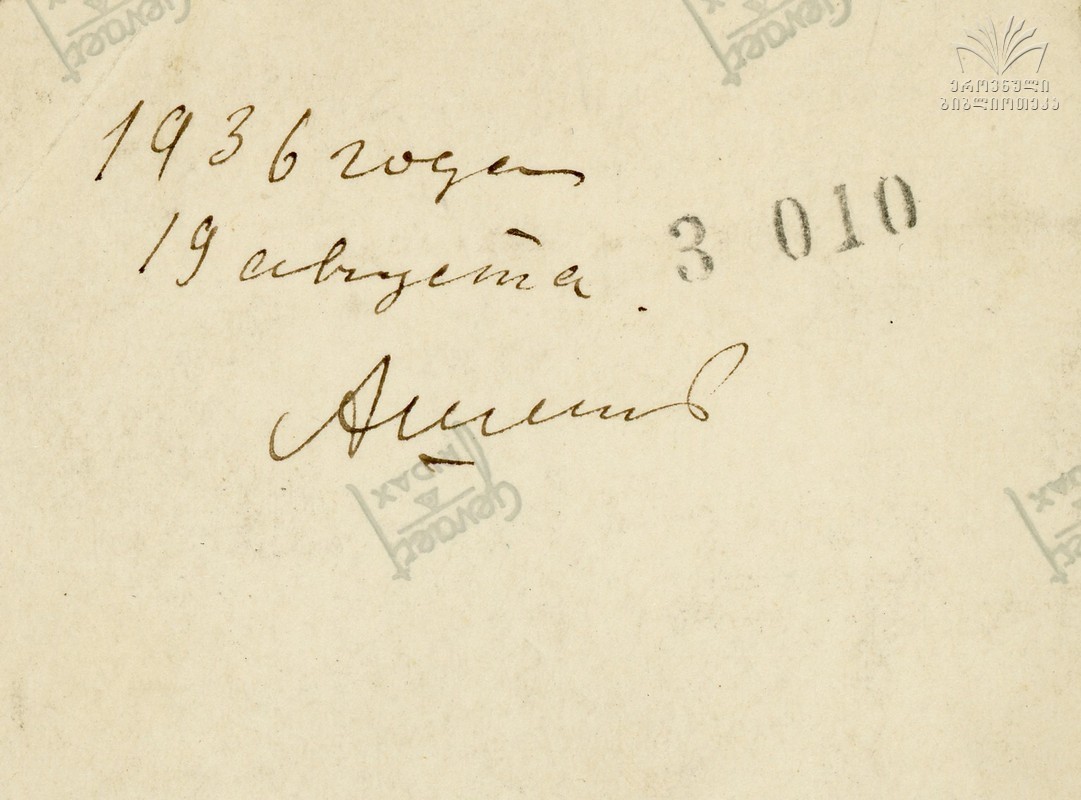 ეროვნული
ბიბლიოთეკა
1936 года
19 августа.
3 010
Gevaert
RIDAX